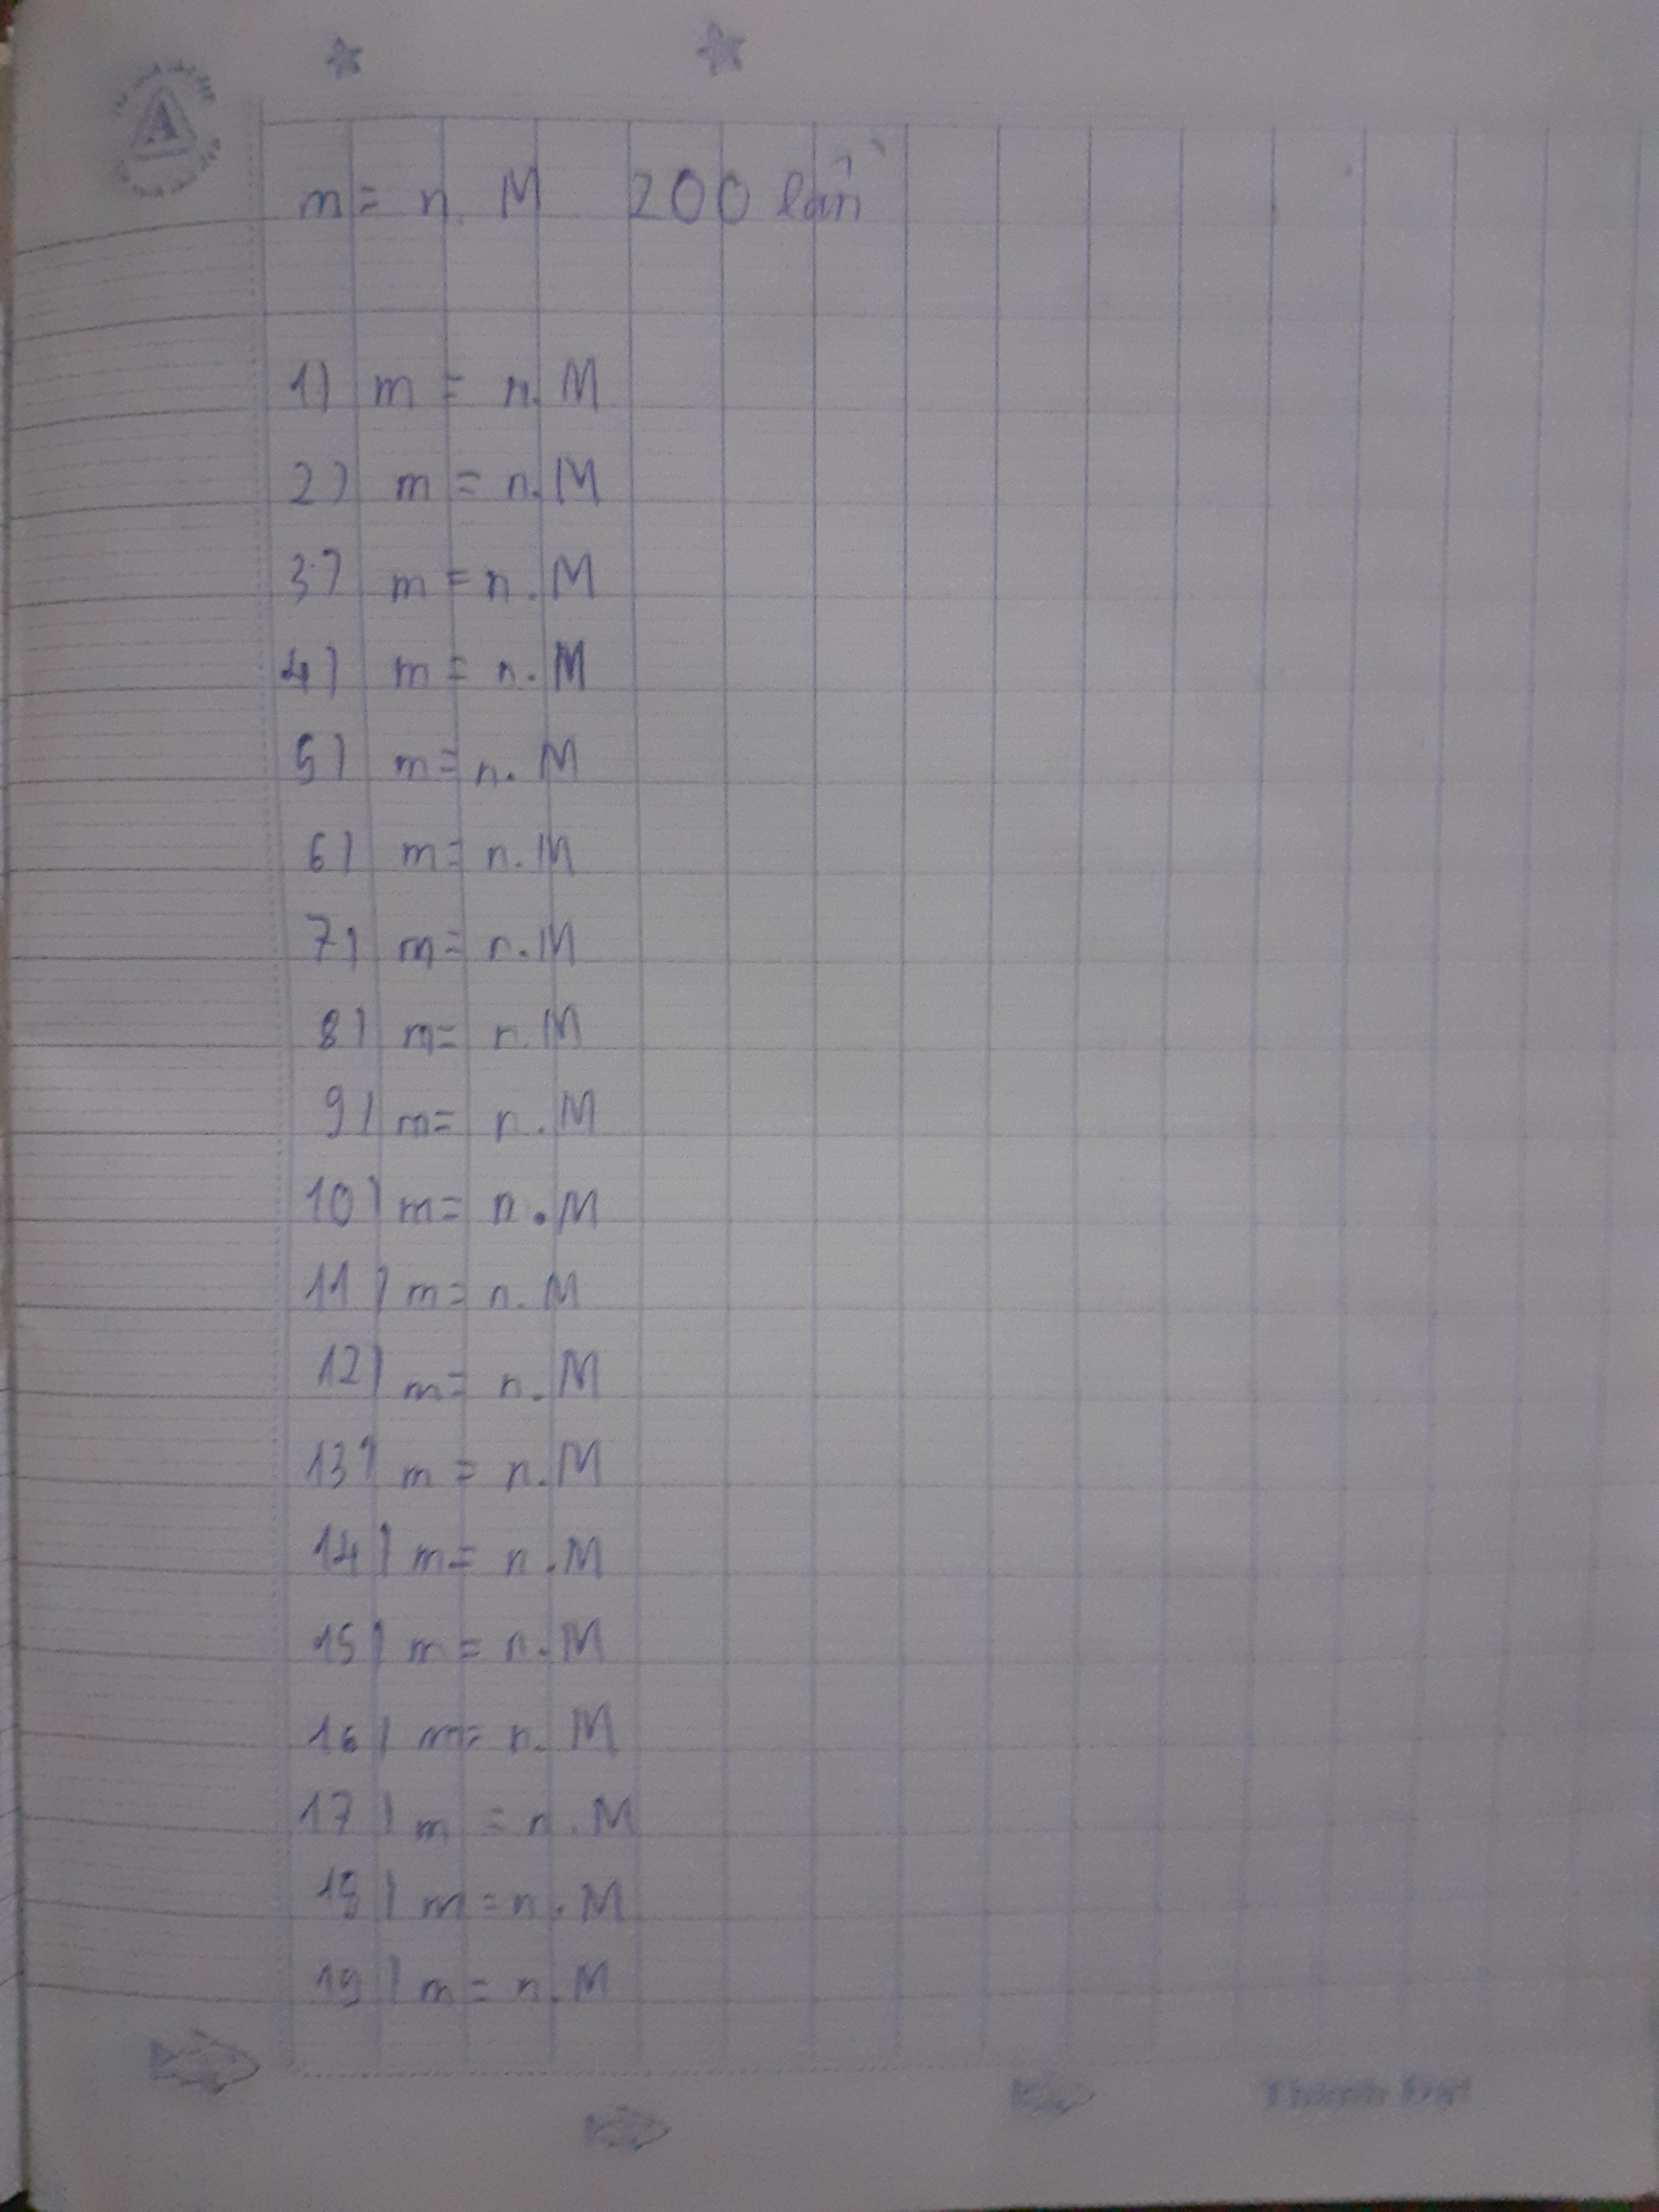 m = n. M 200 lần
1) m = n. M
2) m = n. M
3) m = n. M
4) m = n. M
5) m = n. M
6) m = n. M
7) m = n. M
8) m = n. M
9) m = n. M
10) m = n. M
11) m = n. M
12) m = n. M
13) m = n. M
14) m = n. M
15) m = n. M
16) m = n. M
17) m = n. M
18) m = n. M
19) m = n. M